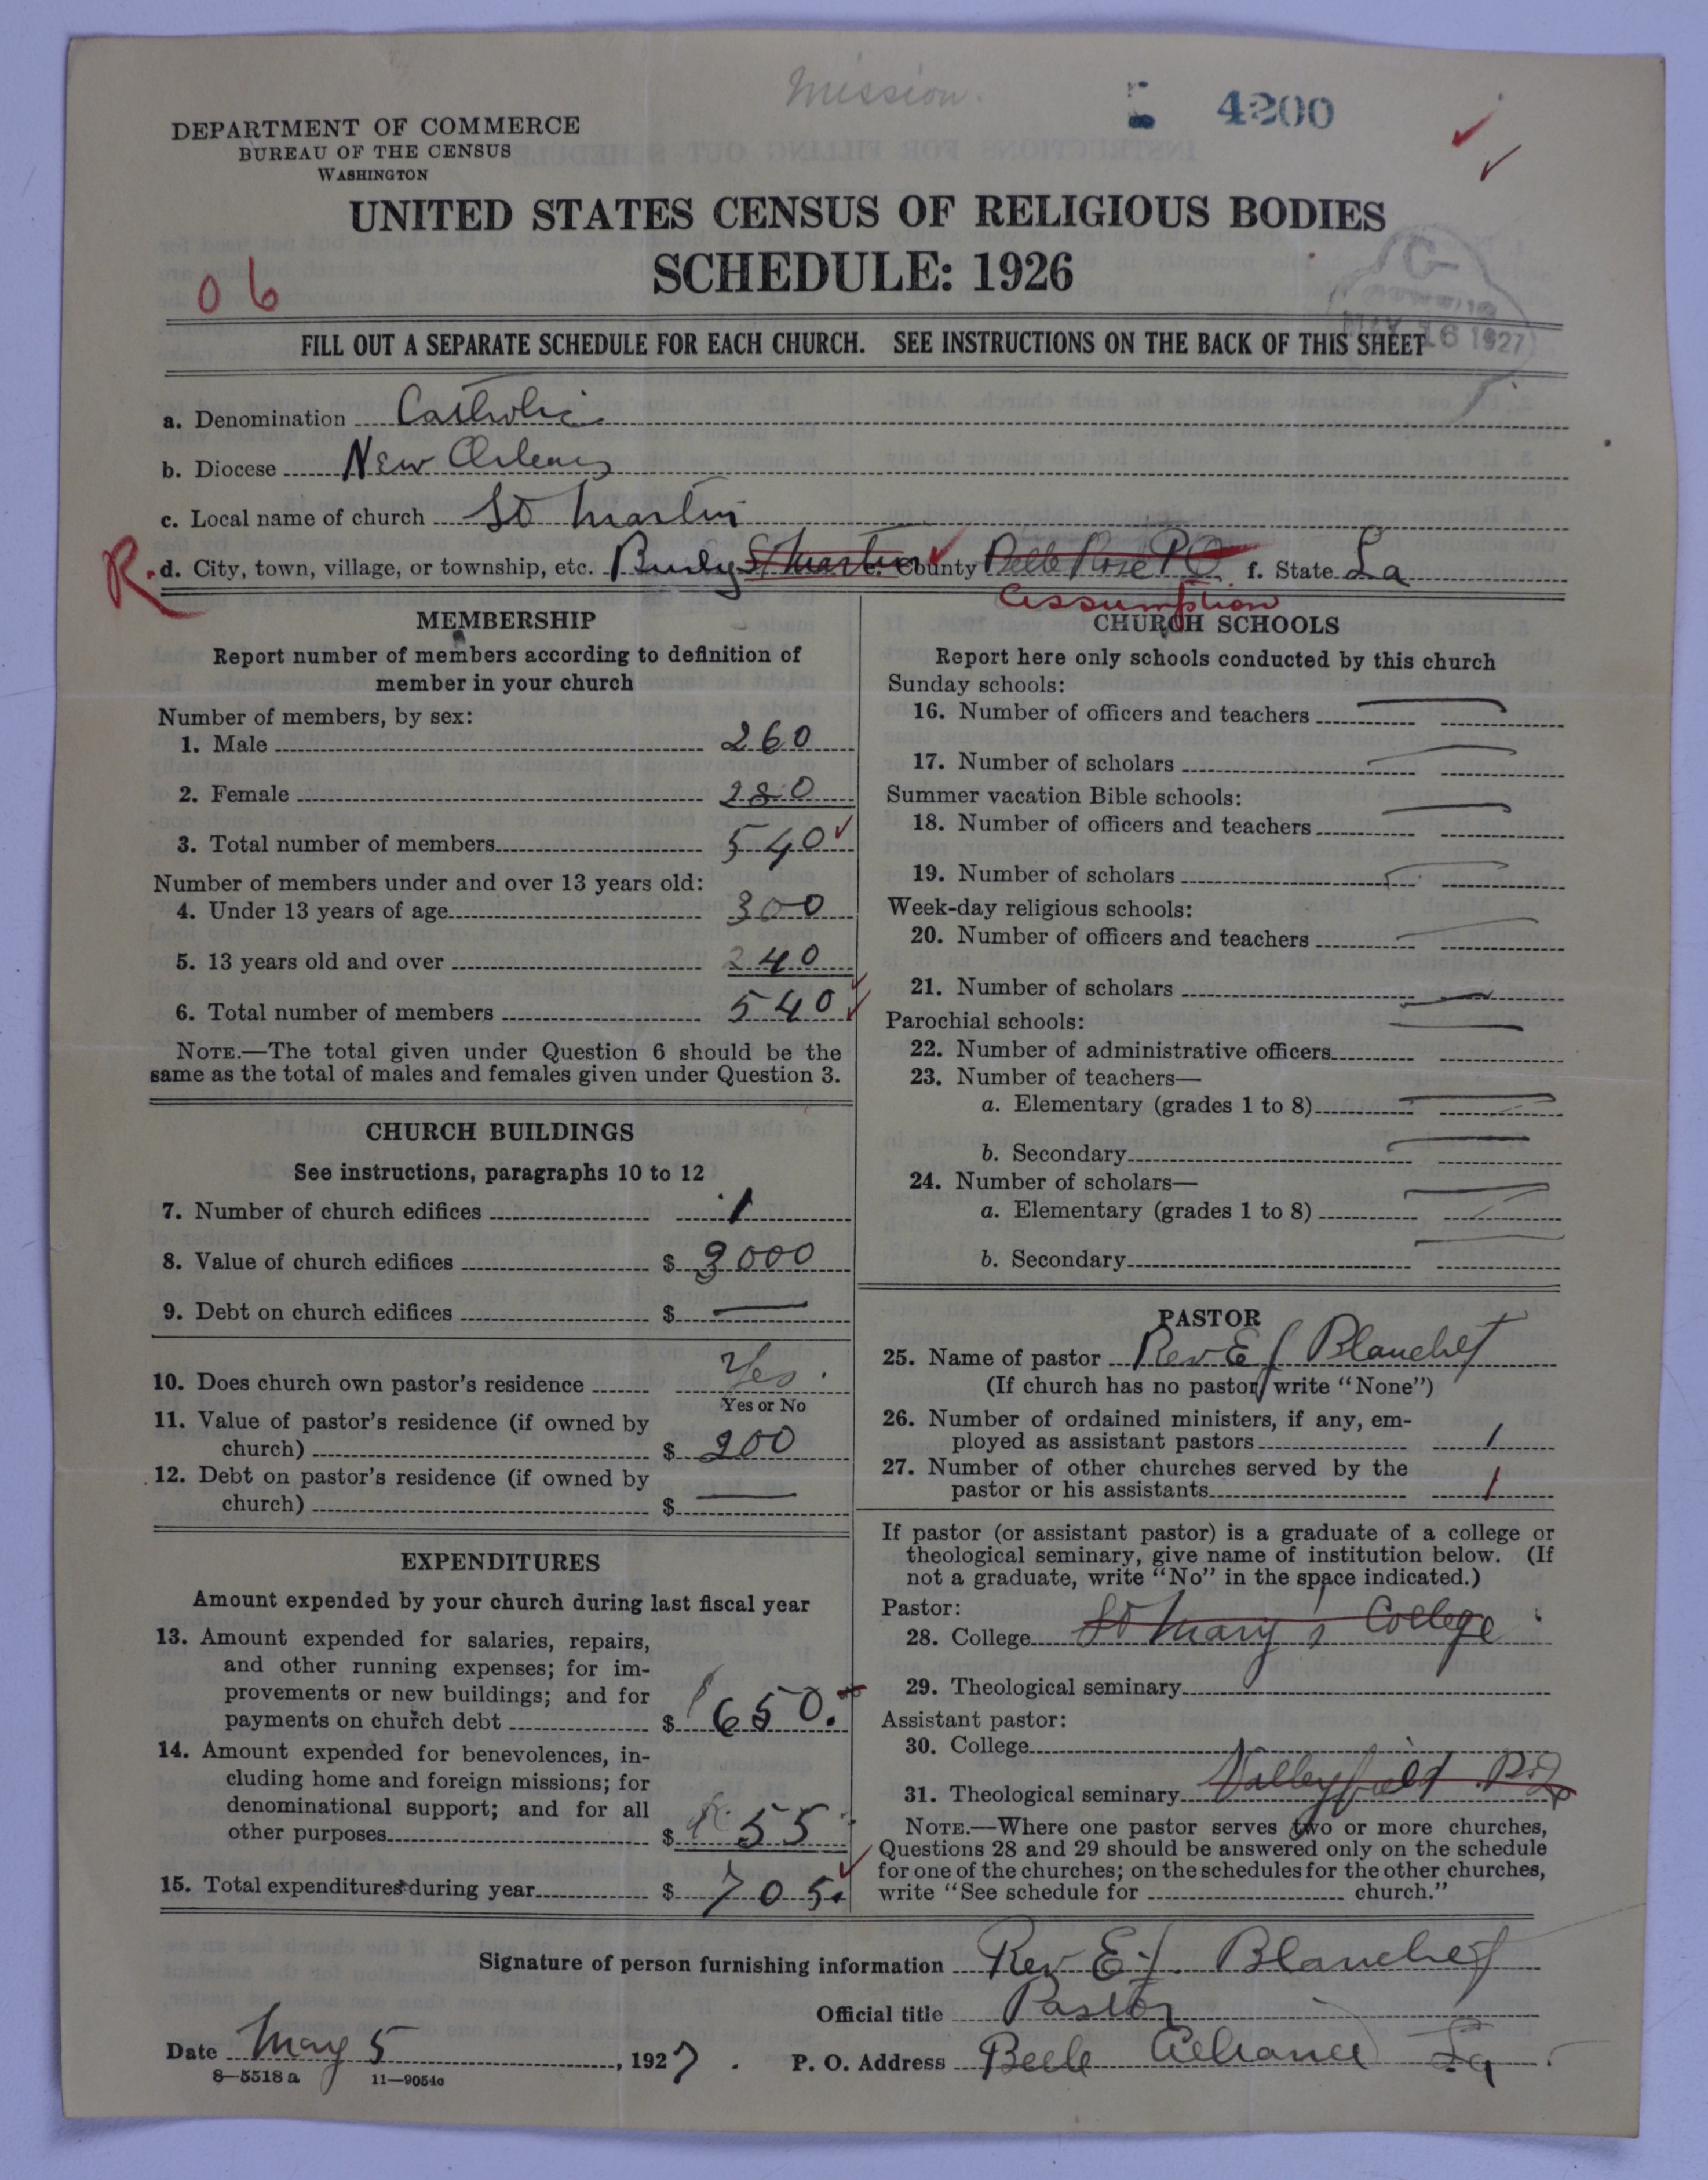 Mission.
4200
DEPARTMENT OF COMMERCE
BUREAU OF THE CENSUS
WASHINGTON
UNITED STATES CENSUS OF RELIGIOUS BODIES
SCHEDULE: 1926
06
MAY 16 1927
FILL OUT A SEPARATE SCHEDULE FOR EACH CHURCH. SEE INSTRUCTIONS ON THE BACK OF THIS SHEET
a. Denomination Catholic
b. Diocese New Orleans
c. Local name of church St Martin
R. d. City, town, village, or township, etc. St Martin e. County Belle Rose PO f. State La
Assumption
MEMBERSHIP
Report number of members according to definition of
member in your church
Number of members, by sex:
1. Male 260
2. Female 280
3. Total number of members 540
Number of members under and over 13 years old:
4. Under 13 years of age 300
5. 13 years old and over 240
6. Total number of members 540
NOTE.—The total given under Question 6 should be the
same as the total of males and females given under Question 3.
CHURCH BUILDINGS
See instructions, paragraphs 10 to 12
7. Number of church edifices 1
8. Value of church edifices $ 3000
9. Debt on church edifices $ —
10. Does church own pastor's residence Yes
Yes or No
11. Value of pastor's residence (if owned by
church) $ 200
12. Debt on pastor's residence (if owned by
church) $ —
EXPENDITURES
Amount expended by your church during last fiscal year
13. Amount expended for salaries, repairs,
and other running expenses; for im-
provements or new buildings; and for
payments on church debt $ 650.
14. Amount expended for benevolences, in-
cluding home and foreign missions; for
denominational support; and for all
other purposes $ 55
15. Total expenditures during year $ 705.
CHURCH SCHOOLS
Report here only schools conducted by this church
Sunday schools:
16. Number of officers and teachers —
17. Number of scholars —
Summer vacation Bible schools:
18. Number of officers and teachers —
19. Number of scholars —
Week-day religious schools:
20. Number of officers and teachers —
21. Number of scholars —
Parochial schools:
22. Number of administrative officers —
23. Number of teachers—
a. Elementary (grades 1 to 8) —
b. Secondary —
24. Number of scholars—
a. Elementary (grades 1 to 8) —
b. Secondary —
PASTOR
25. Name of pastor Rev E J Blanchet
(If church has no pastor, write "None")
26. Number of ordained ministers, if any, em-
ployed as assistant pastors 1
27. Number of other churches served by the
pastor or his assistants 1
If pastor (or assistant pastor) is a graduate of a college or
theological seminary, give name of institution below. (If
not a graduate, write "No" in the space indicated.)
Pastor:
28. College St Mary's College
29. Theological seminary
Assistant pastor:
30. College
31. Theological seminary Valleyfield P.Q
NOTE.—Where one pastor serves two or more churches,
Questions 28 and 29 should be answered only on the schedule
for one of the churches; on the schedules for the other churches,
write "See schedule for church."
Signature of person furnishing information Rev E. J. Blanchet
Official title Pastor
Date May 5, 1927. P. O. Address Belle Alliance La.
8—5518 a 11—9054c